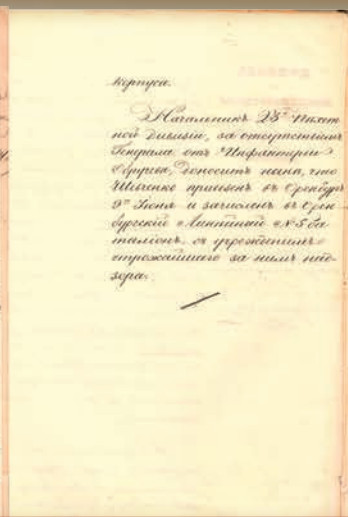 корпуса.
Начальникъ 23й Пѣхот
ной дивизіи, за отсутствіемъ
Генерала отъ Инфантеріи
Обручева, доноситъ нынѣ, что
Шевченко принятъ въ Оренбургѣ
9го Іюня и зачисленъ въ Орен
бургскій Линейный № 5 ба
таліонъ, съ учрежденіемъ
строжайшаго за нимъ над-
зора.